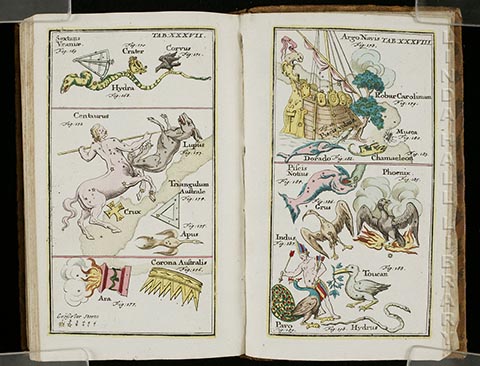 Sextans
Uraniæ.
Fig. 169
TAB. XXXVII.
Fig. 170
Crater
Corvus
Fig. 171.
Hydra
Fig. 168.
Centaurus
Fig. 172
Lupus
Fig. 173.
Triangulum
Australe
Fig. 174.
Crux
Fig. 175.
Apus
Corona Australis
Fig. 176.
Ara
Fig. 177.
Argo Navis
TAB. XXXVIII.
Fig. 178.
Robur Carolinum
Fig. 179.
Musca
Dorado
Fig. 182.
Chamæleon
Piscis
Notius
Fig. 184.
Phoenix
Fig. 186.
Grus
Indus
Fig. 187.
Toucan
Fig. 188.
Pavo
Hydrus
LINDA HALL LIBRARY